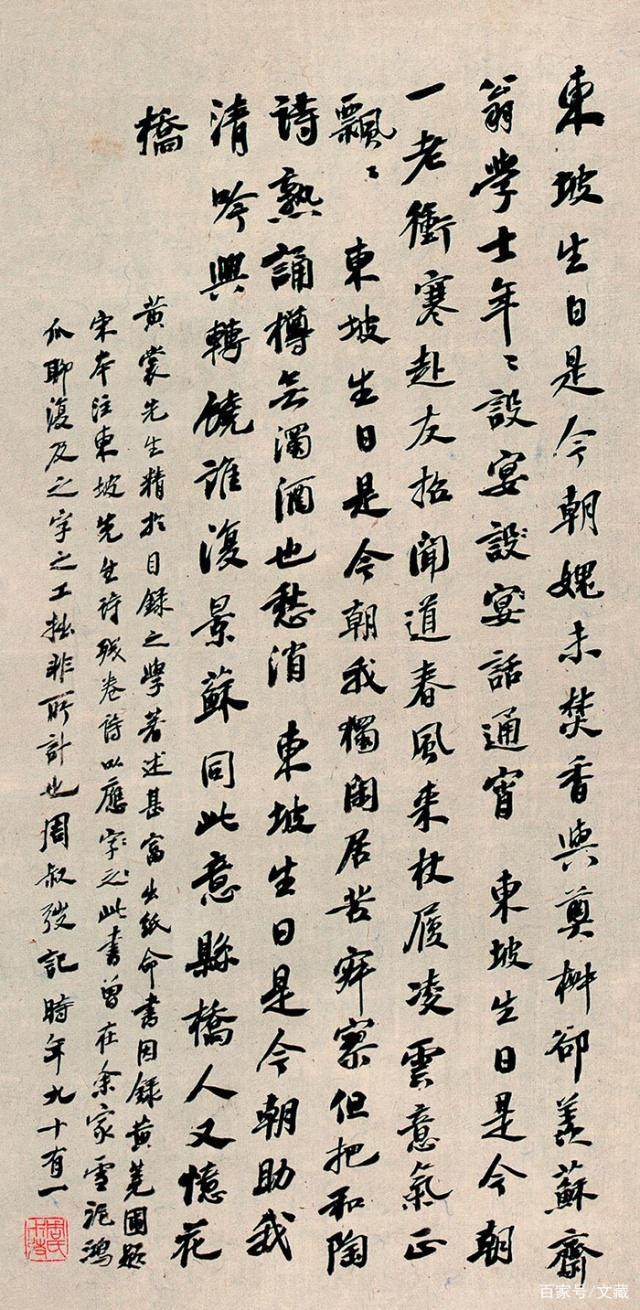 東坡生日是今朝媿未焚香與奠椒卻羨蘇齋
翁學士年〻設宴設宴話通宵 東坡生日是今朝
一老衝寒赴友招聞道春風来杖履凌雲意氣正
飄〻 東坡生日是今朝我獨閒居苦寂寥但把和陶
詩熟誦樽無濁酒也愁消 東坡生日是今朝助我
清吟興轉饒誰復景蘇同此意縣橋人又憶花
橋
黄裳先生精於目録之學著述甚富出紙命書因録黄蕘圃題
宋本注東坡先生詩殘卷詩以應字之此書曾在余家雪泥鴻
爪聊復及之字之工拙非所計也周叔弢記時年九十有一
百家号/文藏